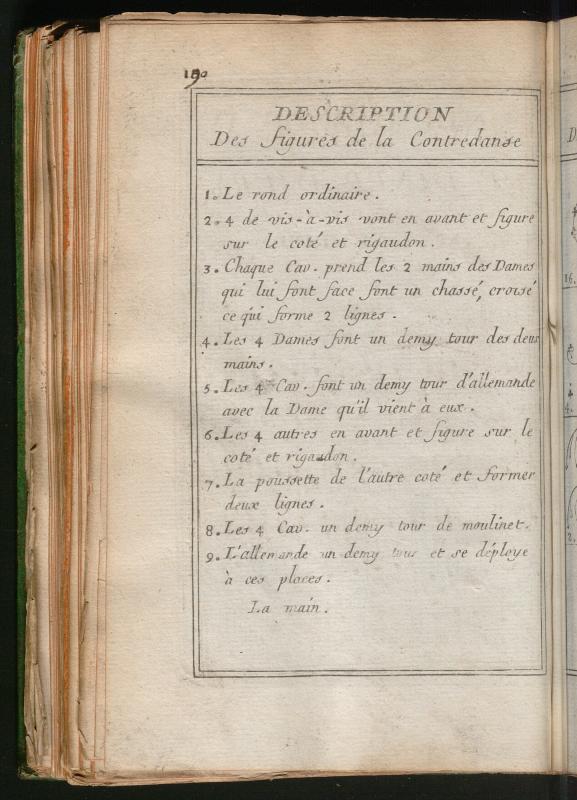 190
DESCRIPTION
Des figures de la Contredanse
1. Le rond ordinaire.
2. 4 de vis-à-vis vont en avant et figure
sur le coté et rigaudon.
3. Chaque Cav. prend les 2 mains des Dames
qui lui font face font un chassé, croisé
ce qui forme 2 lignes.
4. Les 4 Dames font un demy tour des deux
mains.
5. Les 4 Cav. font un demy tour d'allemande
avec la Dame qu'il vient à eux.
6. Les 4 autres en avant et figure sur le
coté et rigaudon.
7. La poussette de l'autre coté et former
deux lignes.
8. Les 4 Cav. un demy tour de moulinet.
9. L'allemande un demy tour et se déploye
à ces places.
La main.
D
16.
4.
2.